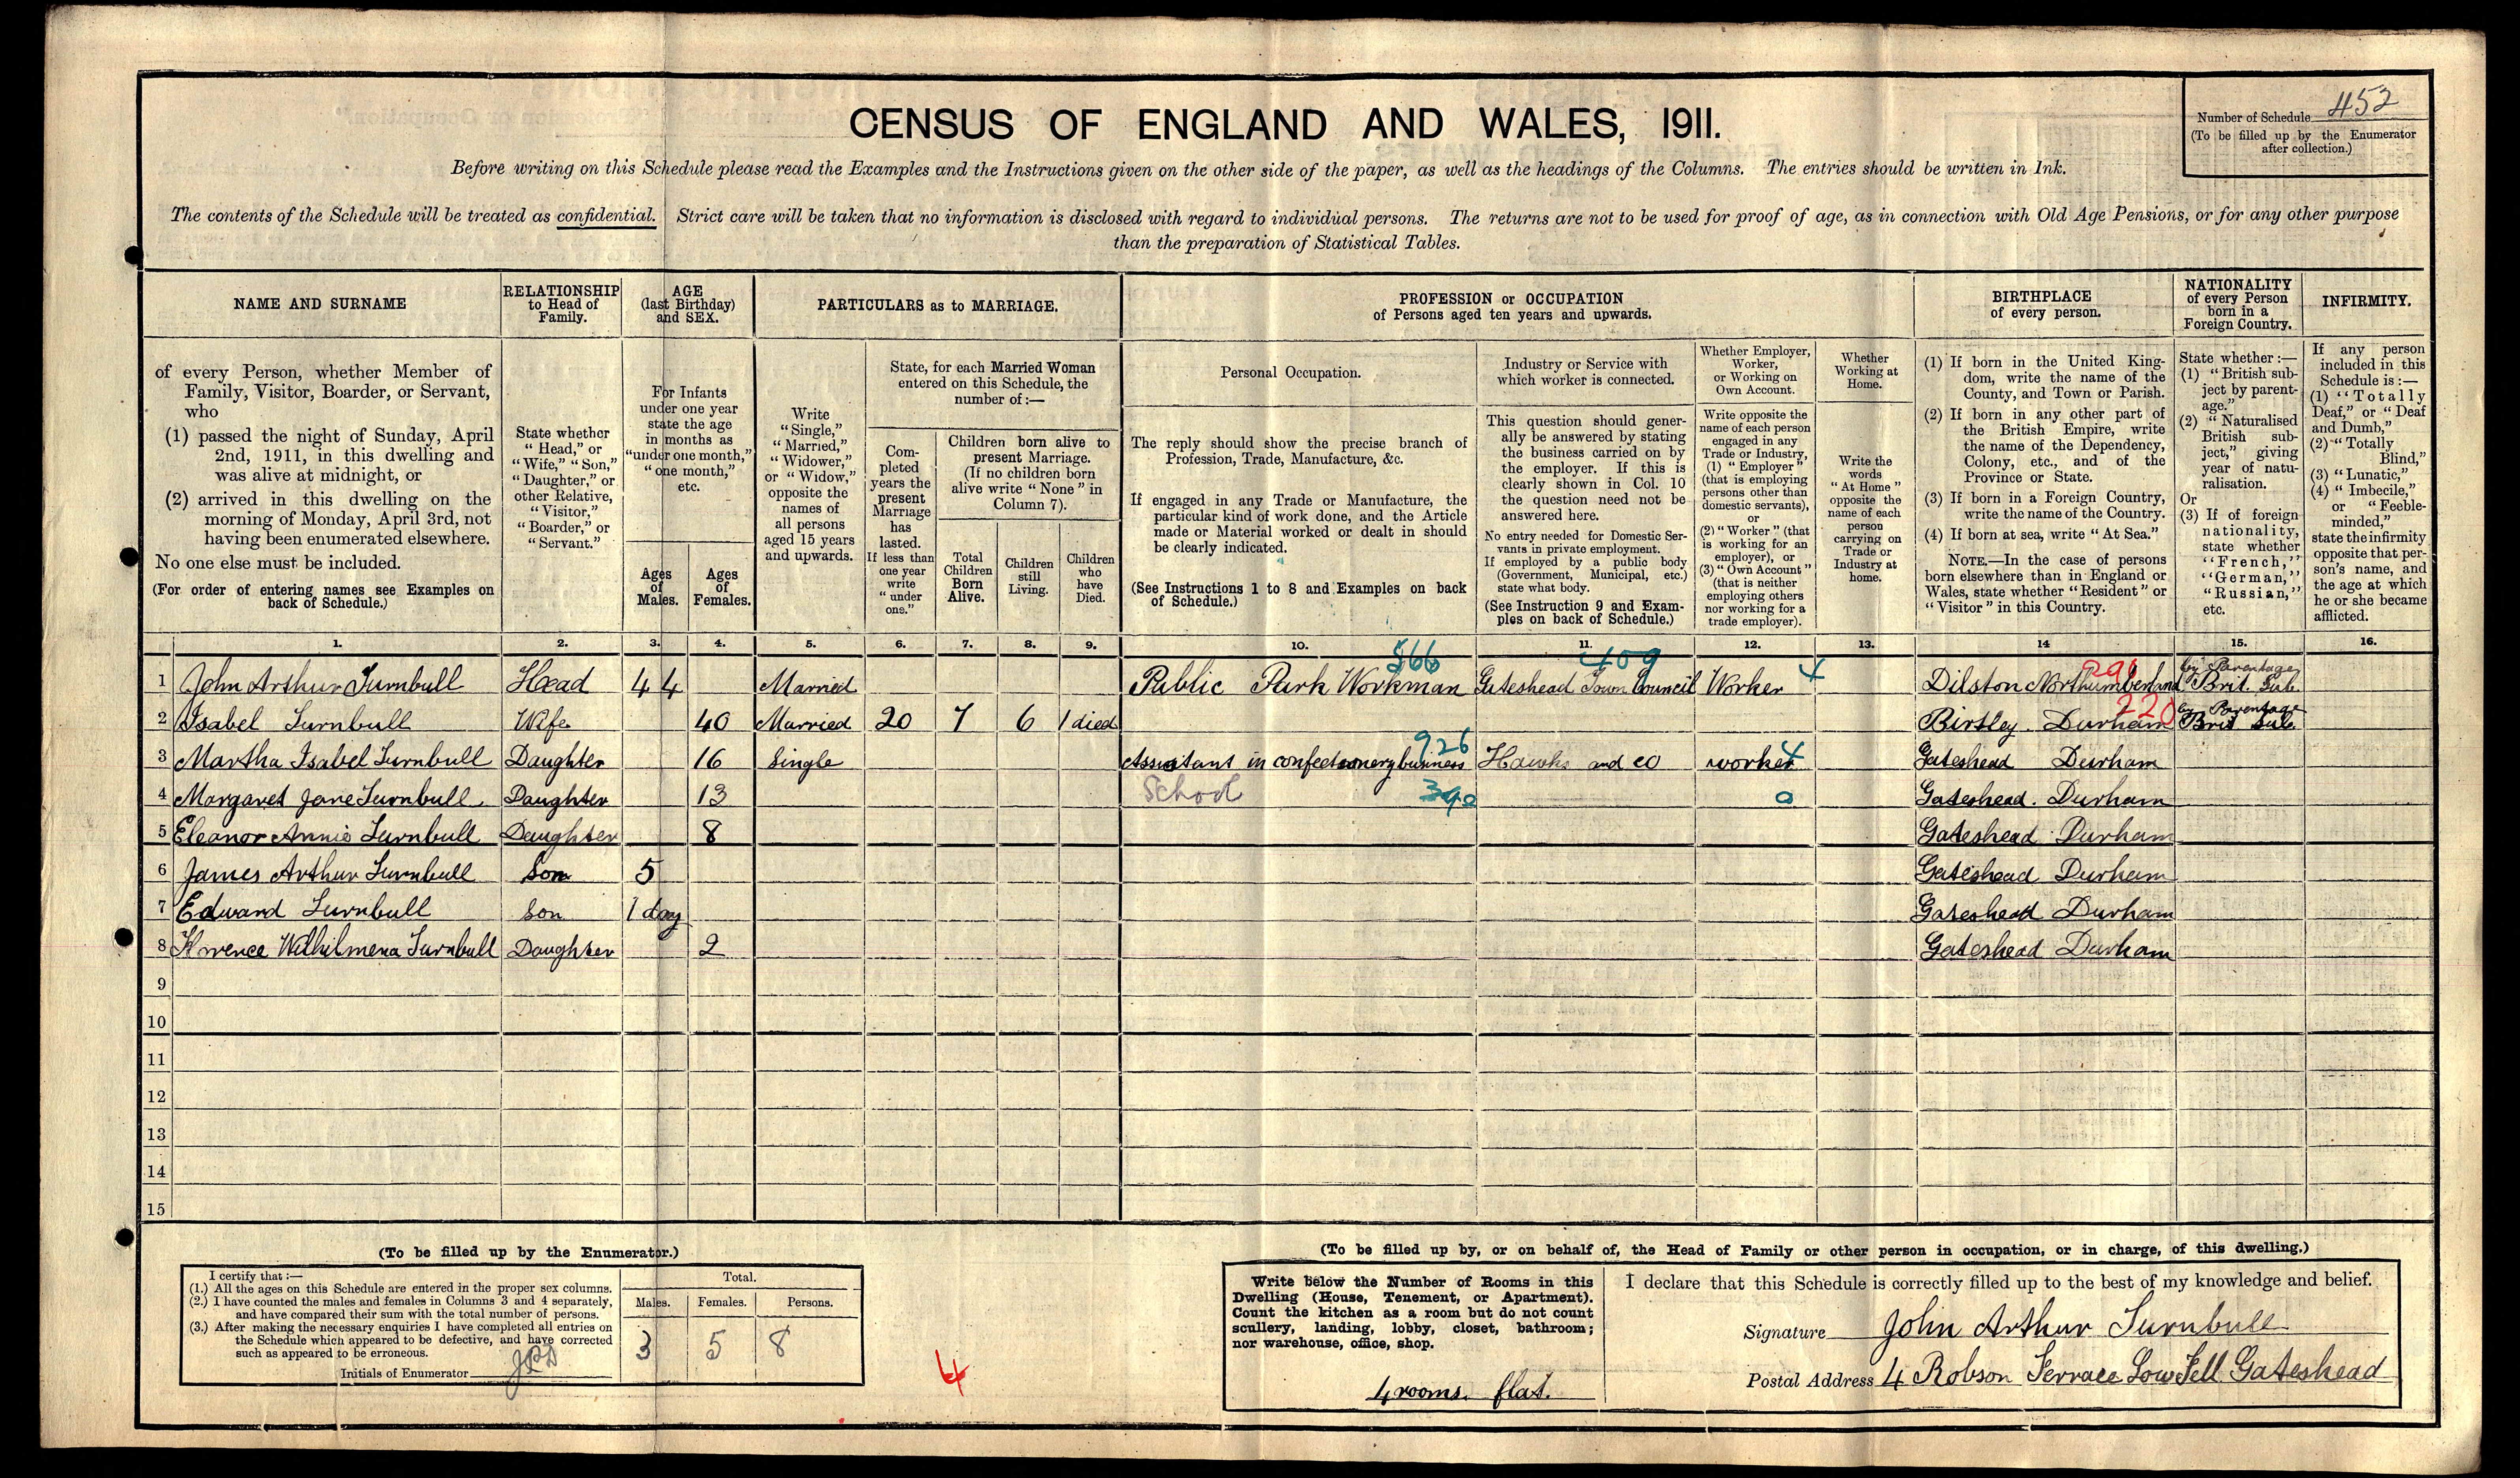 CENSUS OF ENGLAND AND WALES, 1911.
Number of Schedule 452
(To be filled up by the Enumerator
after collection.)
Before writing on this Schedule please read the Examples and the Instructions given on the other side of the paper, as well as the headings of the Columns. The entries should be written in Ink.
The contents of the Schedule will be treated as confidential. Strict care will be taken that no information is disclosed with regard to individual persons. The returns are not to be used for proof of age, as in connection with Old Age Pensions, or for any other purpose
than the preparation of Statistical Tables.
NAME AND SURNAME
of every Person, whether Member of
Family, Visitor, Boarder, or Servant,
who
(1) passed the night of Sunday, April
2nd, 1911, in this dwelling and
was alive at midnight, or
(2) arrived in this dwelling on the
morning of Monday, April 3rd, not
having been enumerated elsewhere.
No one else must be included.
(For order of entering names see Examples on
back of Schedule.)
RELATIONSHIP
to Head of
Family.
State whether
"Head," or
"Wife," "Son,"
"Daughter," or
other Relative,
"Visitor,"
"Boarder," or
"Servant."
AGE
(last Birthday)
and SEX.
For Infants
under one year
state the age
in months as
"under one month,"
"one month,"
etc.
Ages
of
Males.
Ages
of
Females.
PARTICULARS as to MARRIAGE.
Write
"Single,"
"Married,"
"Widower,"
or "Widow,"
opposite the
names of
all persons
aged 15 years
and upwards.
State, for each Married Woman
entered on this Schedule, the
number of:—
Com-
pleted
years the
present
Marriage
has
lasted.
If less than
one year
write
"under
one."
Children born alive to
present Marriage.
(If no children born
alive write "None" in
Column 7).
Total
Children
Born
Alive.
Children
still
Living.
Children
who
have
Died.
PROFESSION or OCCUPATION
of Persons aged ten years and upwards.
Personal Occupation.
The reply should show the precise branch of
Profession, Trade, Manufacture, &c.
If engaged in any Trade or Manufacture, the
particular kind of work done, and the Article
made or Material worked or dealt in should
be clearly indicated.
(See Instructions 1 to 8 and Examples on back
of Schedule.)
Industry or Service with
which worker is connected.
This question should gener-
ally be answered by stating
the business carried on by
the employer. If this is
clearly shown in Col. 10
the question need not be
answered here.
No entry needed for Domestic Ser-
vants in private employment.
If employed by a public body
(Government, Municipal, etc.)
state what body.
(See Instruction 9 and Exam-
ples on back of Schedule.)
Whether Employer,
Worker,
or Working on
Own Account.
Write opposite the
name of each person
engaged in any
Trade or Industry,
(1) "Employer"
(that is employing
persons other than
domestic servants),
or
(2) "Worker" (that
is working for an
employer), or
(3) "Own Account"
(that is neither
employing others
nor working for a
trade employer).
Whether
Working at
Home.
Write the
words
"At Home"
opposite the
name of each
person
carrying on
Trade or
Industry at
home.
BIRTHPLACE
of every person.
(1) If born in the United King-
dom, write the name of the
County, and Town or Parish.
(2) If born in any other part of
the British Empire, write
the name of the Dependency,
Colony, etc., and of the
Province or State.
(3) If born in a Foreign Country,
write the name of the Country.
(4) If born at sea, write "At Sea."
NOTE.—In the case of persons
born elsewhere than in England or
Wales, state whether "Resident" or
"Visitor" in this Country.
NATIONALITY
of every Person
born in a
Foreign Country.
State whether:—
(1) "British sub-
ject by parent-
age."
(2) "Naturalised
British sub-
ject," giving
year of natu-
ralisation.
Or
(3) If of foreign
nationality,
state whether
"French,"
"German,"
"Russian,"
etc.
INFIRMITY.
If any person
included in this
Schedule is:—
(1) "Totally
Deaf," or "Deaf
and Dumb,"
(2) "Totally
Blind,"
(3) "Lunatic,"
(4) "Imbecile,"
or "Feeble-
minded,"
state the infirmity
opposite that per-
son's name, and
the age at which
he or she became
afflicted.
1. 2. 3. 4. 5. 6. 7. 8. 9. 10. 11. 12. 13. 14 15. 16.
566 409 4 291 by Parentage
1 John Arthur Turnbull Head 44 Married Public Park Workman Gateshead Town Council Worker Dilston Northumberland Brit. Sub.
220 by Parentage
2 Isabel Turnbull Wife 40 Married 20 7 6 1 died Birtley Durham Brit Sub.
926 4
3 Martha Isabel Turnbull Daughter 16 Single Assistant in confectionery business Hawks and co worker Gateshead Durham
4 Margaret Jane Turnbull Daughter 13 School 390 0 Gateshead. Durham
5 Eleanor Annie Turnbull Daughter 8 Gateshead Durham
6 James Arthur Turnbull Son 5 Gateshead Durham
7 Edward Turnbull Son 1 day Gateshead Durham
8 Florence Wilhilmena Turnbull Daughter 2 Gateshead Durham
9
10
11
12
13
14
15
(To be filled up by the Enumerator.)
I certify that:—
(1.) All the ages on this Schedule are entered in the proper sex columns.
(2.) I have counted the males and females in Columns 3 and 4 separately,
and have compared their sum with the total number of persons.
(3.) After making the necessary enquiries I have completed all entries on
the Schedule which appeared to be defective, and have corrected
such as appeared to be erroneous.
Initials of Enumerator JPD
Total.
Males. Females. Persons.
3 5 8
4
(To be filled up by, or on behalf of, the Head of Family or other person in occupation, or in charge, of this dwelling.)
Write below the Number of Rooms in this
Dwelling (House, Tenement, or Apartment).
Count the kitchen as a room but do not count
scullery, landing, lobby, closet, bathroom;
nor warehouse, office, shop.
4 rooms. flat.
I declare that this Schedule is correctly filled up to the best of my knowledge and belief.
Signature John Arthur Turnbull
Postal Address 4 Robson Terrace Low Fell Gateshead